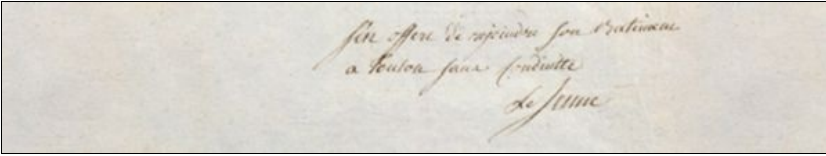 s'en offere de rejoindre son Batiment
a Toulon sans Conduitte
Le Jeune